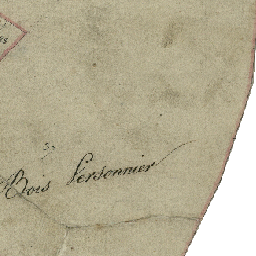 Bois Personnier